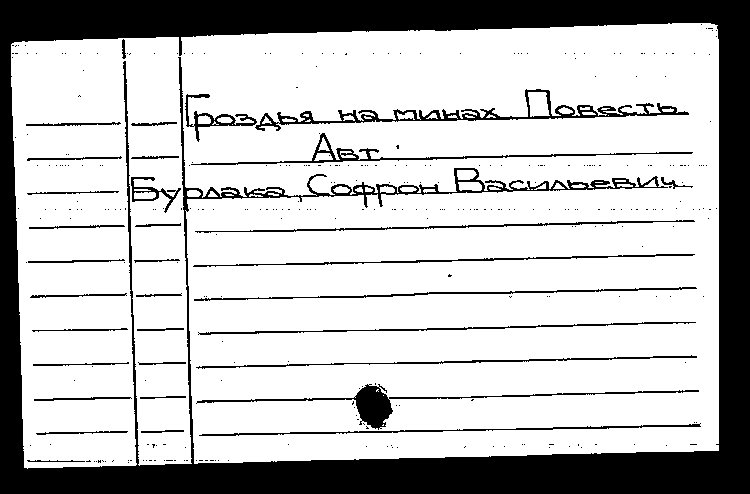 Гроздья на минах Повесть
Авт.
Бурлака, Софрон Васильевич